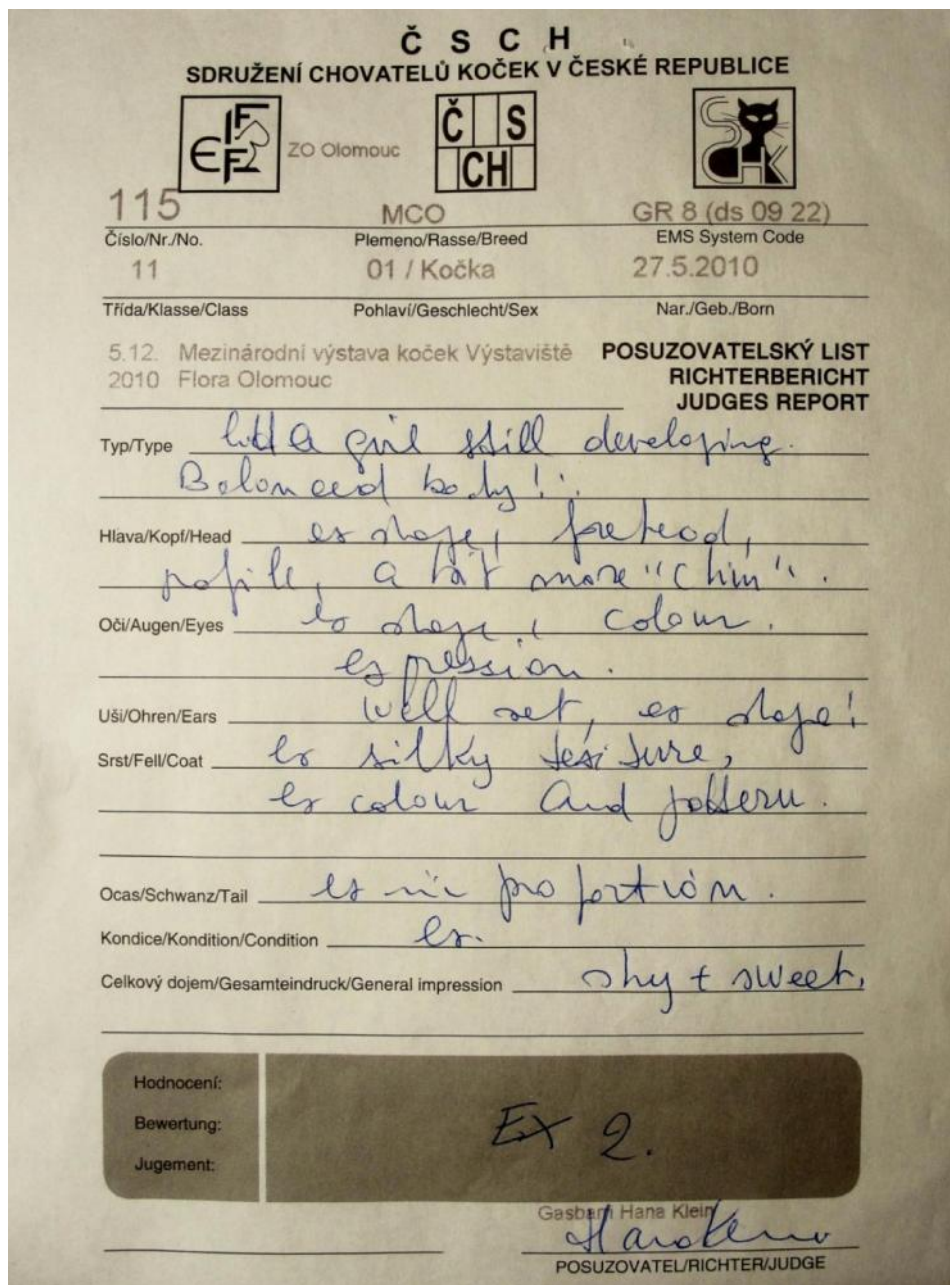 Č S C H
SDRUŽENÍ CHOVATELŮ KOČEK V ČESKÉ REPUBLICE
FIFE ZO Olomouc Č S CH SCHK
115 MCO GR 8 (ds 09 22)
Číslo/Nr./No. Plemeno/Rasse/Breed EMS System Code
11 01 / Kočka 27.5.2010
Třída/Klasse/Class Pohlaví/Geschlecht/Sex Nar./Geb./Born
5.12. Mezinárodní výstava koček Výstaviště POSUZOVATELSKÝ LIST
2010 Flora Olomouc RICHTERBERICHT
JUDGES REPORT
Typ/Type still developing.
Balanced body!
Hlava/Kopf/Head ex shape, forehead,
profile, a bit more "chin".
Oči/Augen/Eyes ex shape, colour.
expression.
Uši/Ohren/Ears well set, ex shape!
Srst/Fell/Coat ex silky texture,
ex colour and pattern.
Ocas/Schwanz/Tail ex in proportion.
Kondice/Kondition/Condition ex.
Celkový dojem/Gesamteindruck/General impression shy + sweet.
Hodnocení:
Bewertung: EX 2.
Jugement:
Hana Klein
POSUZOVATEL/RICHTER/JUDGE